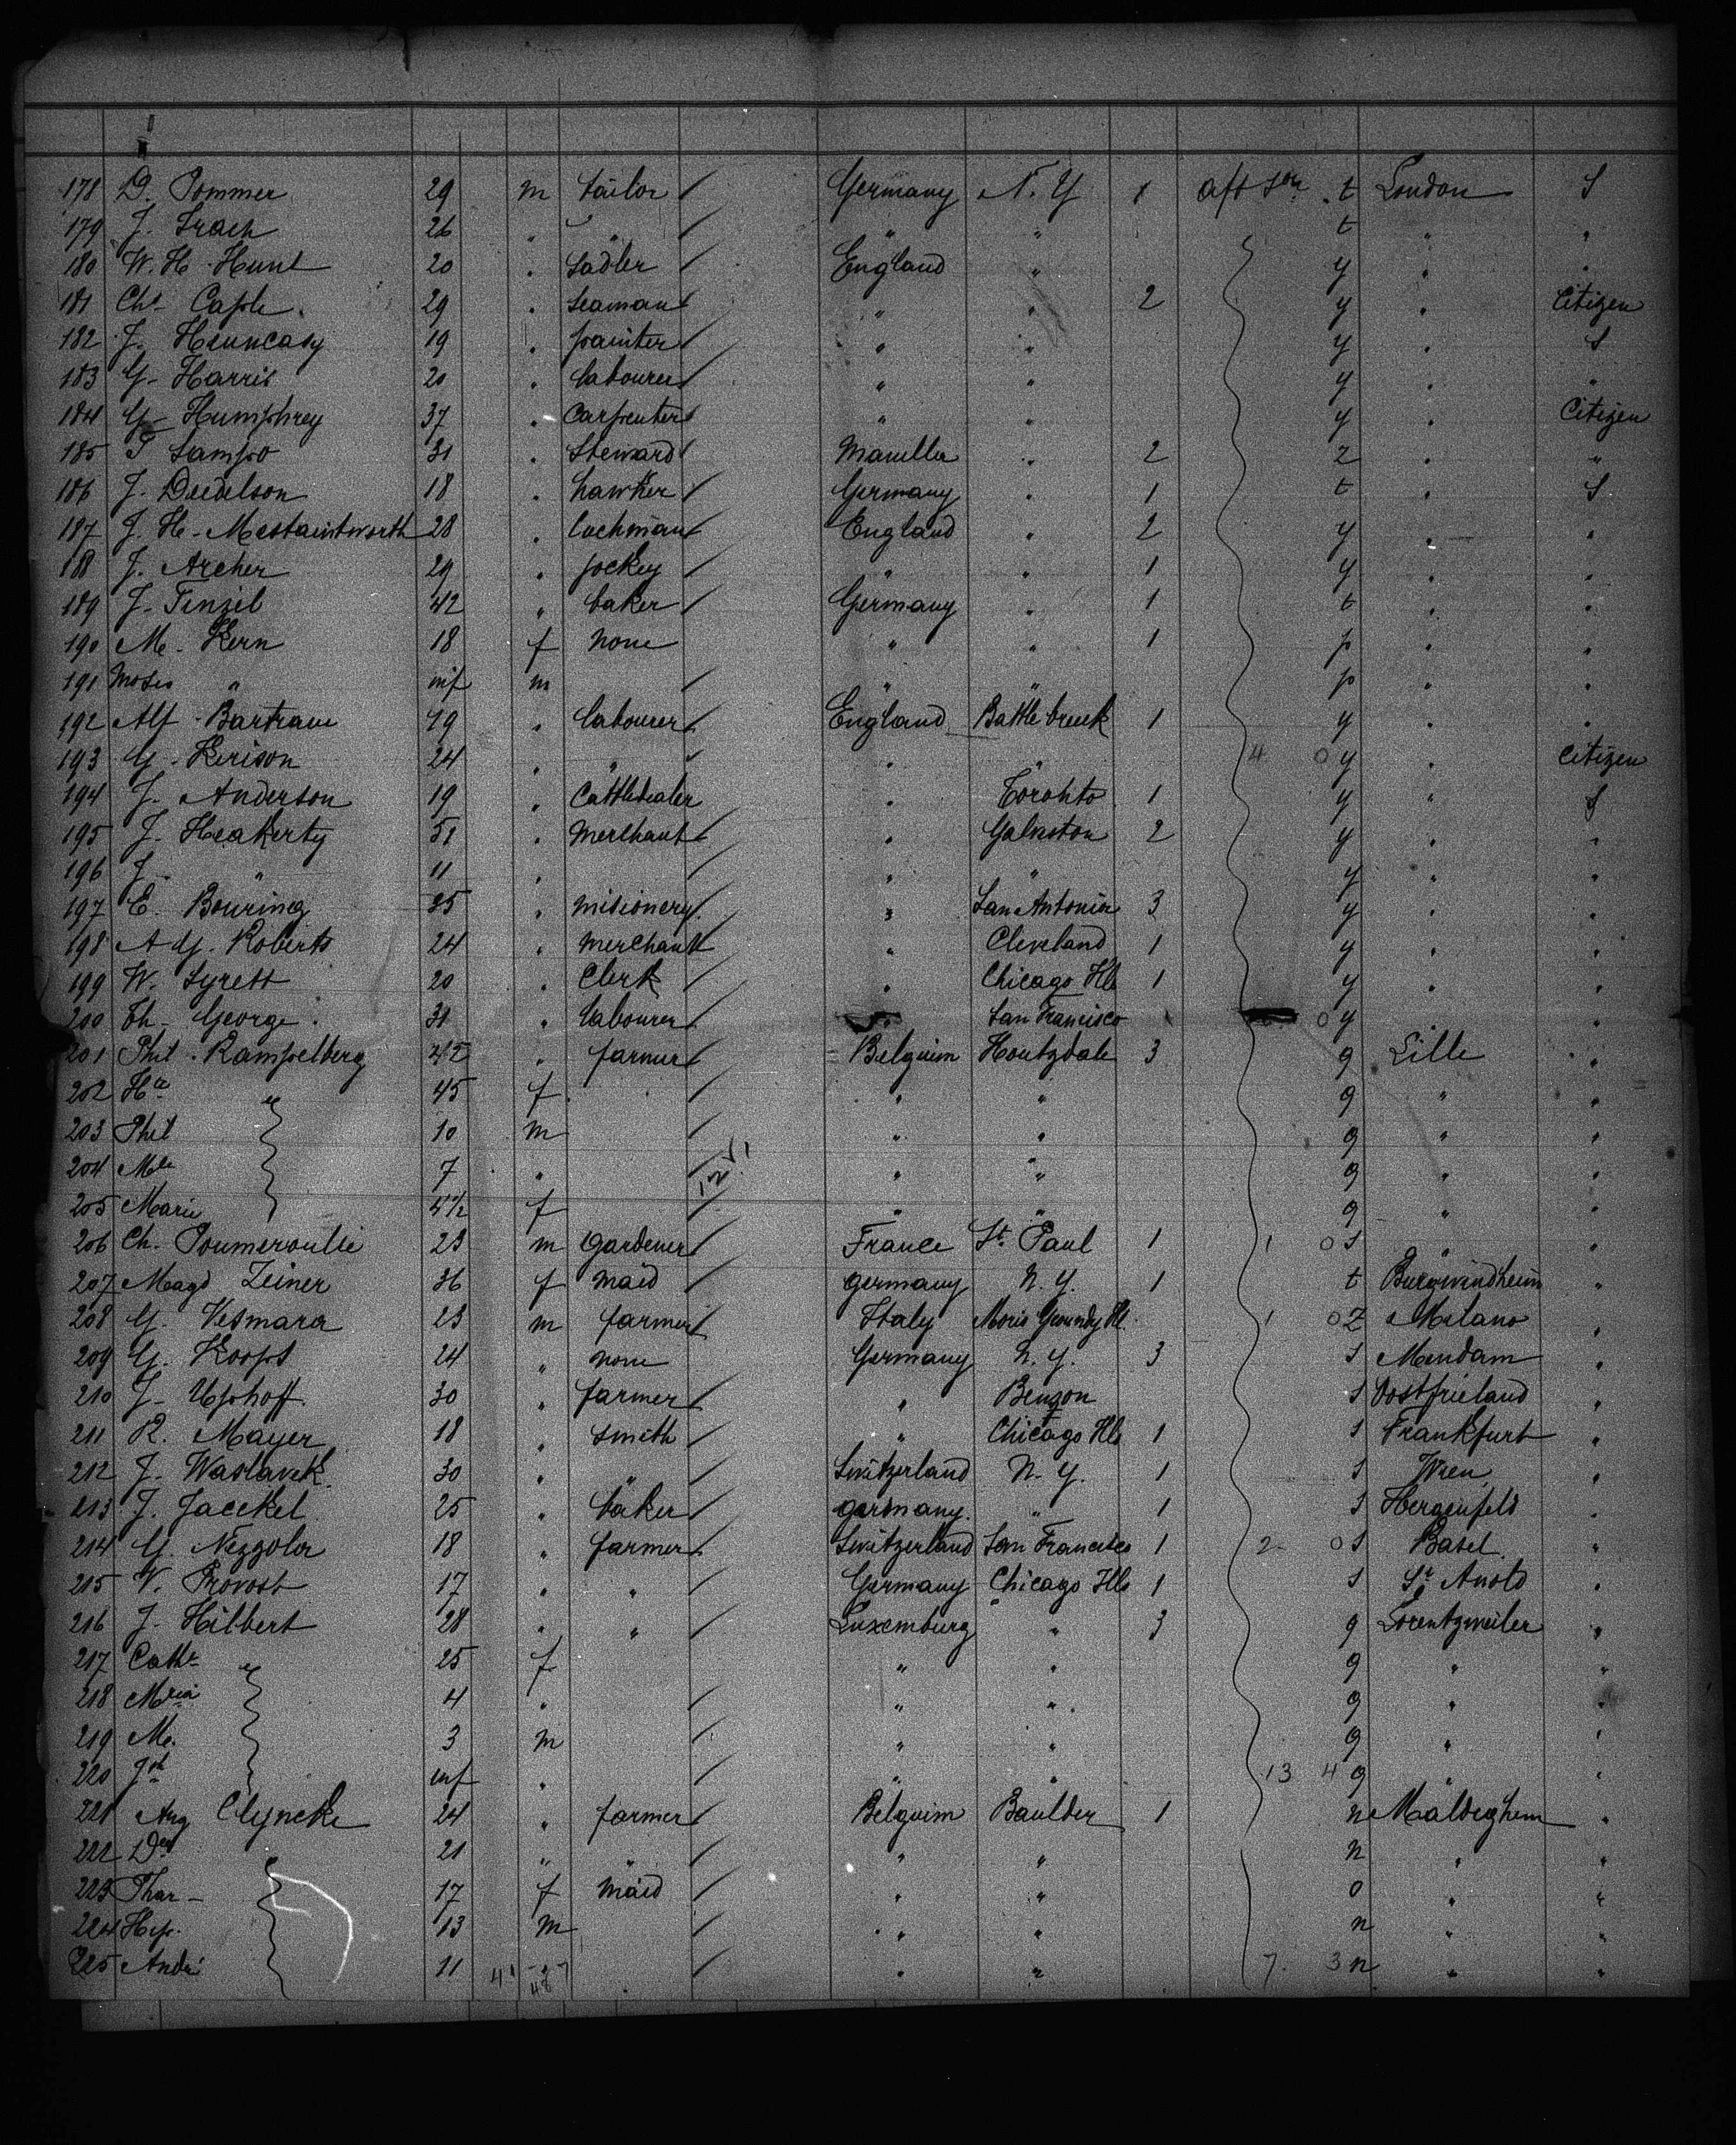 178 D. Pommer 29 m tailor / Germany N. Y 1 aft t London S
179 J. Trach 26 " " / " " t " "
180 W. H. Hunt 20 " Sadler / England " y " "
181 Chs Caple 29 " Seaman / " " 2 y " Citizen
182 J. 19 " painter / " " y " S
183 G. Harris 20 " labourer / " " y " "
184 G. Humphrey 37 " Carpenter / " " y " Citizen
185 Sampo 31 " Steward / Manilla " 2 z " "
186 J. Deidelson 18 " hawker / Germany " 1 t " S
187 J. H. 28 " Cochman / England " 2 y " "
188 J. Archer 29 " jockey / " " 1 y " "
189 J. Tinzel 42 " baker / Germany " 1 t " "
190 M. Kern 18 f none " " 1 p " "
191 Moses " inf m / " " p " "
192 Alf. Bartram 19 " labourer / England Battle Creek 1 y " "
193 G. Kerison 24 " " / " " 4 0 y " Citizen
194 J. Anderson 19 " Cattledealer " Toronto 1 y " S
195 J. Heakerty 51 " Merchant / " Galveston 2 y " "
196 J. " 11 " / " " y " "
197 E. Bouring 35 " misionery / " San Antonia 3 y " "
198 Roberts 24 " merchant / " Cleveland 1 y " "
199 W. Syrett 20 " Clerk / " Chicago Ills 1 y " "
200 Th. George 31 " labourer " San Francisco 0 y "
201 Phil. Rampelberg 42 " farmer / Belguim Houtzdale 3 g Lille "
202 45 f / " " g " "
203 Phil 10 m / " " g " "
204 7 " / " " g " "
205 Marie 4½ f / " " g " "
206 Ch. Poumeroulie 23 m gardener / France St. Paul 1 1 0 S " "
207 Magd Zeiner 36 f maid / germany N. Y. 1 t Burgwindheim "
208 G. Vesmara 23 m farmer / Italy 1 0 Z Milano "
209 G. Koops 24 " none Germany N. Y. 3 S "
210 J. Uphoff 30 " farmer / " Benson S Oostfrieland "
211 R. Mayer 18 " smith / " Chicago Ills 1 S Frankfurt "
212 J. Waslavek 30 " " / Switzerland N. Y. 1 S Wien "
213 J. Jaeckel 25 " baker / germany " 1 S Hergenfeld "
214 G. Nezzola 18 " farmer / Switzerland San Francisco 1 2 0 S Basel "
215 V. Provost 17 " " / Germany Chicago Ills 1 S St. Avold "
216 J. Hilbert 28 " " / Luxemburg " 3 g Lorentzweiler "
217 Cath. 25 f " " g " "
218 Mria 4 " / " " g " "
219 M. 3 m / " " g " "
220 inf " / " " 13 4 g " "
221 Aug Clyncke 24 " farmer / Belguim Baulder 1 n Maldeghem "
222 21 " " / " " n " "
223 Thar 17 f maid / " " o " "
224 Hip. 13 m / " " n " "
225 André 11 " / " " 7 3 n " "